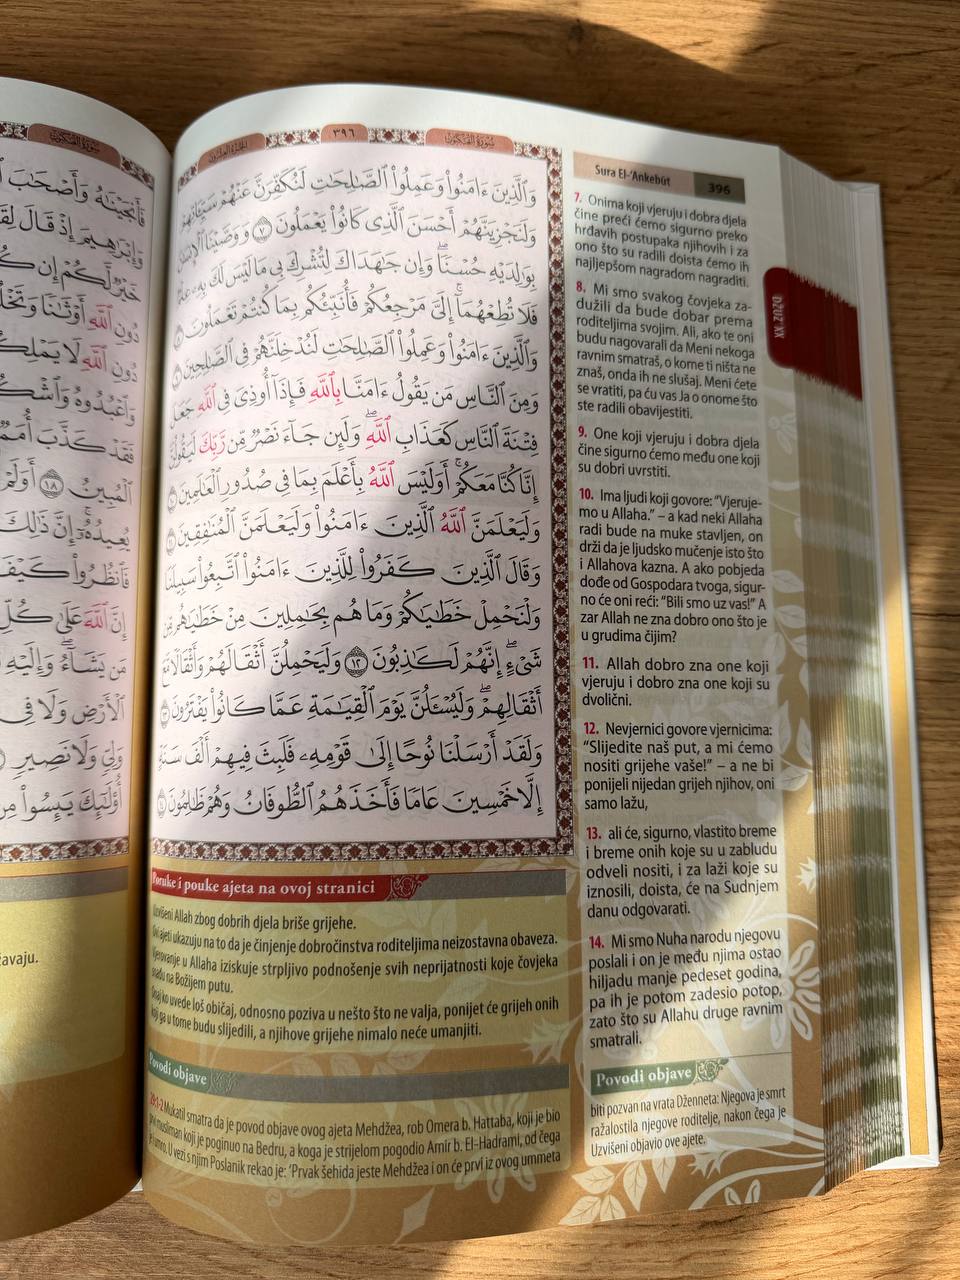 سُورَةُ العَنكَبُوتِ
فَأَنجَيْنَٰهُ وَأَصْحَٰبَ
وَإِبْرَٰهِيمَ إِذْ قَالَ
خَيْرٌ لَّكُمْ إِن
دُونِ ٱللَّهِ أَوْثَٰنًا
دُونِ ٱللَّهِ لَا
وَٱعْبُدُوهُ
فَقَدْ كَذَّبَ أُمَمٌ
ٱلْمُبِينُ ١٨ أَوَلَمْ
يُعِيدُهُۥٓ إِنَّ ذَٰلِكَ
فَٱنظُرُوا۟ كَيْفَ
إِنَّ ٱللَّهَ عَلَىٰ كُلِّ
مَن يَشَآءُ وَإِلَيْهِ
ٱلْأَرْضِ وَلَا فِى
وَلِىٍّ وَلَا نَصِيرٍ
أُو۟لَٰٓئِكَ يَئِسُوا۟ مِن
žavaju.
سُورَةُ العَنكَبُوتِ ٣٩٦ الجُزْءُ العِشْرُونَ
وَٱلَّذِينَ ءَامَنُوا۟ وَعَمِلُوا۟ ٱلصَّٰلِحَٰتِ لَنُكَفِّرَنَّ عَنْهُمْ سَيِّـَٔاتِهِمْ
وَلَنَجْزِيَنَّهُمْ أَحْسَنَ ٱلَّذِى كَانُوا۟ يَعْمَلُونَ ٧ وَوَصَّيْنَا ٱلْإِنسَٰنَ
بِوَٰلِدَيْهِ حُسْنًا ۖ وَإِن جَٰهَدَاكَ لِتُشْرِكَ بِى مَا لَيْسَ لَكَ بِهِۦ عِلْمٌ
فَلَا تُطِعْهُمَآ ۚ إِلَىَّ مَرْجِعُكُمْ فَأُنَبِّئُكُم بِمَا كُنتُمْ تَعْمَلُونَ ٨
وَٱلَّذِينَ ءَامَنُوا۟ وَعَمِلُوا۟ ٱلصَّٰلِحَٰتِ لَنُدْخِلَنَّهُمْ فِى ٱلصَّٰلِحِينَ ٩
وَمِنَ ٱلنَّاسِ مَن يَقُولُ ءَامَنَّا بِٱللَّهِ فَإِذَآ أُوذِىَ فِى ٱللَّهِ جَعَلَ
فِتْنَةَ ٱلنَّاسِ كَعَذَابِ ٱللَّهِ ۖ وَلَئِن جَآءَ نَصْرٌ مِّن رَّبِّكَ لَيَقُولُنَّ
إِنَّا كُنَّا مَعَكُمْ ۚ أَوَلَيْسَ ٱللَّهُ بِأَعْلَمَ بِمَا فِى صُدُورِ ٱلْعَٰلَمِينَ ١٠
وَلَيَعْلَمَنَّ ٱللَّهُ ٱلَّذِينَ ءَامَنُوا۟ وَلَيَعْلَمَنَّ ٱلْمُنَٰفِقِينَ ١١
وَقَالَ ٱلَّذِينَ كَفَرُوا۟ لِلَّذِينَ ءَامَنُوا۟ ٱتَّبِعُوا۟ سَبِيلَنَا
وَلْنَحْمِلْ خَطَٰيَٰكُمْ وَمَا هُم بِحَٰمِلِينَ مِنْ خَطَٰيَٰهُم مِّن
شَىْءٍ ۖ إِنَّهُمْ لَكَٰذِبُونَ ١٢ وَلَيَحْمِلُنَّ أَثْقَالَهُمْ وَأَثْقَالًا مَّعَ
أَثْقَالِهِمْ ۖ وَلَيُسْـَٔلُنَّ يَوْمَ ٱلْقِيَٰمَةِ عَمَّا كَانُوا۟ يَفْتَرُونَ ١٣
وَلَقَدْ أَرْسَلْنَا نُوحًا إِلَىٰ قَوْمِهِۦ فَلَبِثَ فِيهِمْ أَلْفَ سَنَةٍ
إِلَّا خَمْسِينَ عَامًا فَأَخَذَهُمُ ٱلطُّوفَانُ وَهُمْ ظَٰلِمُونَ ١٤
Sura El-'Ankebūt 396
7. Onima koji vjeruju i dobra djela
čine preći ćemo sigurno preko
hrđavih postupaka njihovih i za
ono što su radili doista ćemo ih
najljepšom nagradom nagraditi.
8. Mi smo svakog čovjeka za-
dužili da bude dobar prema
roditeljima svojim. Ali, ako te oni
budu nagovarali da Meni nekoga
ravnim smatraš, o kome ti ništa ne
znaš, onda ih ne slušaj. Meni ćete
se vratiti, pa ću vas Ja o onome što
ste radili obavijestiti.
9. One koji vjeruju i dobra djela
čine sigurno ćemo među one koji
su dobri uvrstiti.
10. Ima ljudi koji govore: "Vjeruje-
mo u Allaha." – a kad neki Allaha
radi bude na muke stavljen, on
drži da je ljudsko mučenje isto što
i Allahova kazna. A ako pobjeda
dođe od Gospodara tvoga, sigur-
no će oni reći: "Bili smo uz vas!" A
zar Allah ne zna dobro ono što je
u grudima čijim?
11. Allah dobro zna one koji
vjeruju i dobro zna one koji su
dvolični.
12. Nevjernici govore vjernicima:
"Slijedite naš put, a mi ćemo
nositi grijehe vaše!" – a ne bi
ponijeli nijedan grijeh njihov, oni
samo lažu,
13. ali će, sigurno, vlastito breme
i breme onih koje su u zabludu
odveli nositi, i za laži koje su
iznosili, doista, će na Sudnjem
danu odgovarati.
14. Mi smo Nuha narodu njegovu
poslali i on je među njima ostao
hiljadu manje pedeset godina,
pa ih je potom zadesio potop,
zato što su Allahu druge ravnim
smatrali.
DŽUZ XX
Poruke i pouke ajeta na ovoj stranici
Uzvišeni Allah zbog dobrih djela briše grijehe.
Ovi ajeti ukazuju na to da je činjenje dobročinstva roditeljima neizostavna obaveza.
Vjerovanje u Allaha iziskuje strpljivo podnošenje svih neprijatnosti koje čovjeka
snađu na Božijem putu.
Onaj ko uvede loš običaj, odnosno poziva u nešto što ne valja, ponijet će grijeh onih
koji ga u tome budu slijedili, a njihove grijehe nimalo neće umanjiti.
Povodi objave
29:1-2 Mukatil smatra da je povod objave ovog ajeta Mehdžea, rob Omera b. Hattaba, koji je bio
prvi musliman koji je poginuo na Bedru, a koga je strijelom pogodio Amir b. El-Hadrami, od čega
je umro. U vezi s njim Poslanik rekao je: 'Prvak šehida jeste Mehdžea i on će prvi iz ovog ummeta
Povodi objave
biti pozvan na vrata Dženneta: Njegova je smrt
ražalostila njegove roditelje, nakon čega je
Uzvišeni objavio ove ajete.